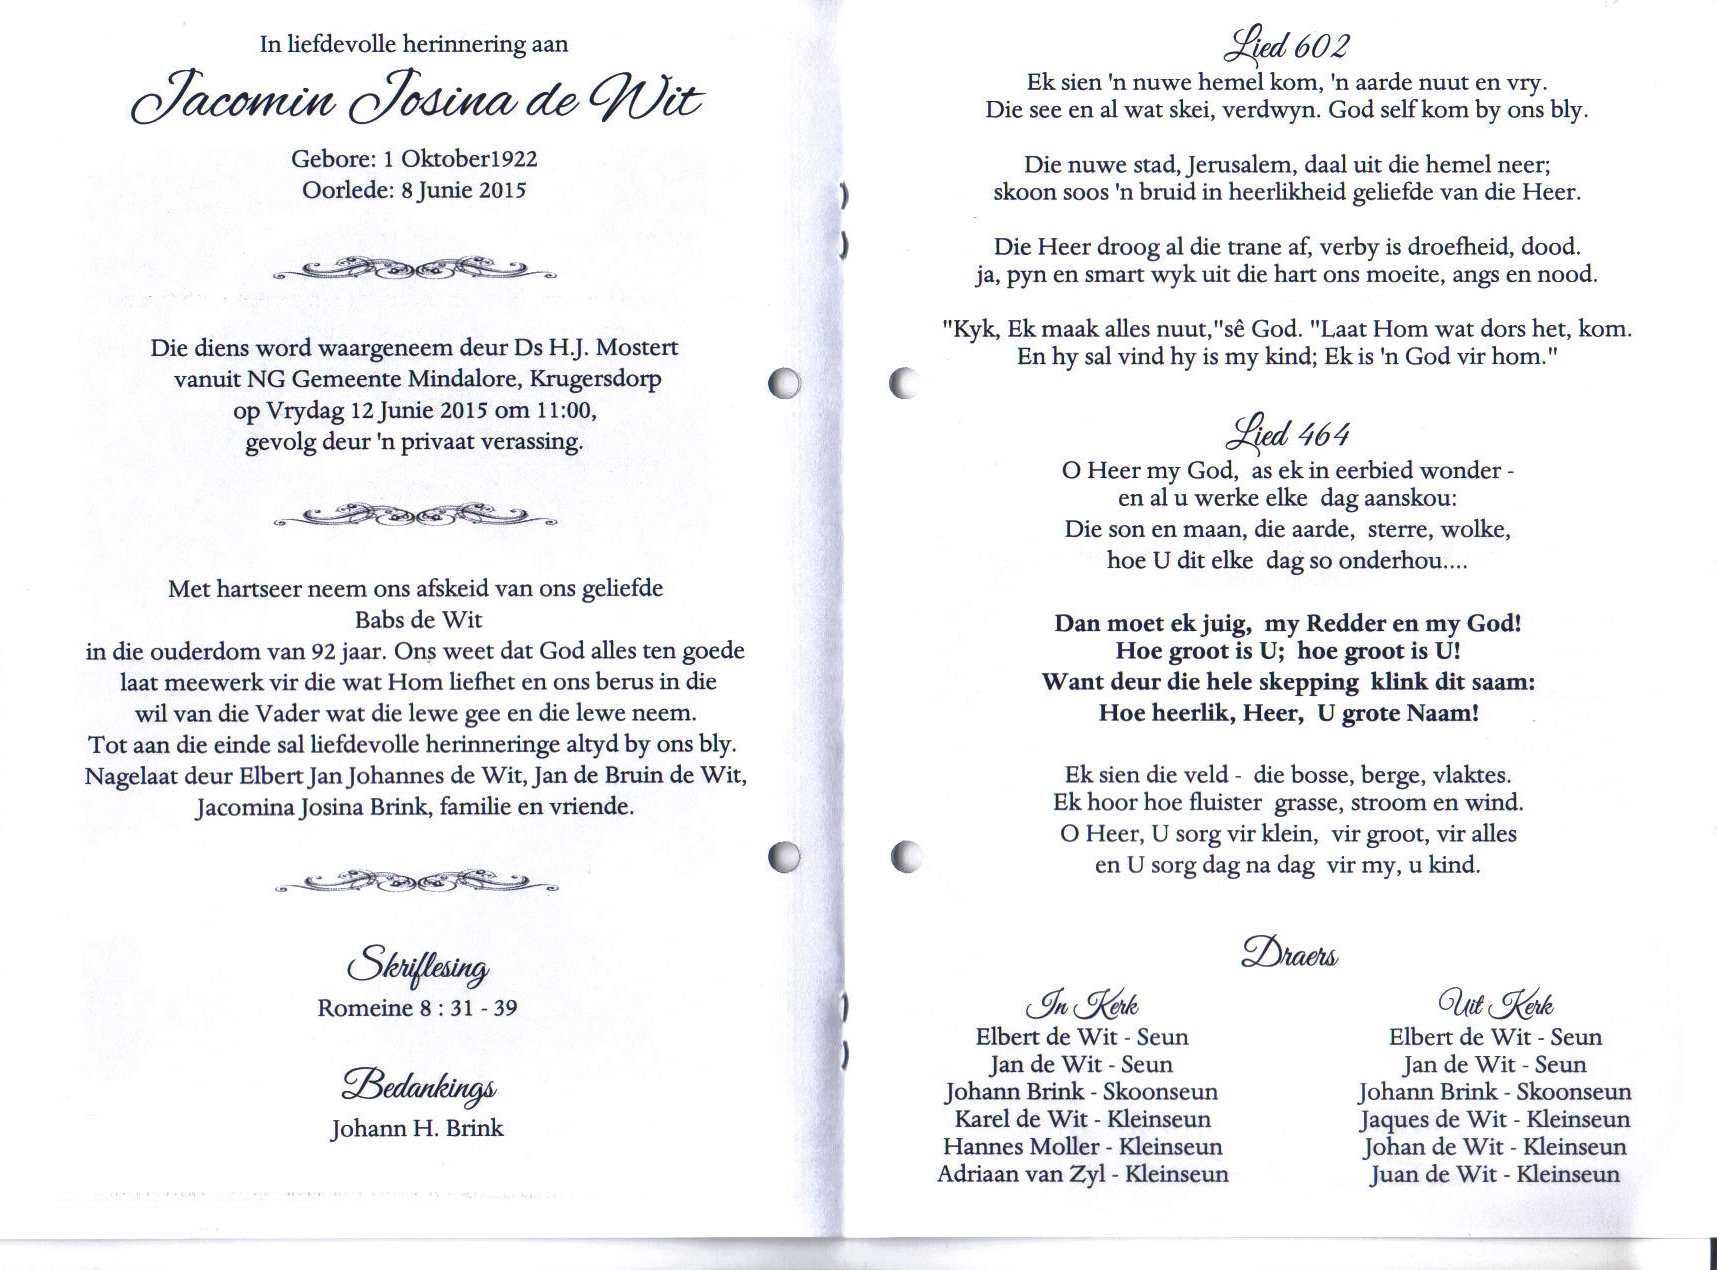 In liefdevolle herinnering aan
Jacomin Josina de Wit
Gebore: 1 Oktober1922
Oorlede: 8 Junie 2015
Die diens word waargeneem deur Ds H.J. Mostert
vanuit NG Gemeente Mindalore, Krugersdorp
op Vrydag 12 Junie 2015 om 11:00,
gevolg deur 'n privaat verassing.
Met hartseer neem ons afskeid van ons geliefde
Babs de Wit
in die ouderdom van 92 jaar. Ons weet dat God alles ten goede
laat meewerk vir die wat Hom liefhet en ons berus in die
wil van die Vader wat die lewe gee en die lewe neem.
Tot aan die einde sal liefdevolle herinneringe altyd by ons bly.
Nagelaat deur Elbert Jan Johannes de Wit, Jan de Bruin de Wit,
Jacomina Josina Brink, familie en vriende.
Skriflesing
Romeine 8 : 31 - 39
Bedankings
Johann H. Brink
Lied 602
Ek sien 'n nuwe hemel kom, 'n aarde nuut en vry.
Die see en al wat skei, verdwyn. God self kom by ons bly.
Die nuwe stad, Jerusalem, daal uit die hemel neer;
skoon soos 'n bruid in heerlikheid geliefde van die Heer.
Die Heer droog al die trane af, verby is droefheid, dood.
ja, pyn en smart wyk uit die hart ons moeite, angs en nood.
"Kyk, Ek maak alles nuut,"sê God. "Laat Hom wat dors het, kom.
En hy sal vind hy is my kind; Ek is 'n God vir hom."
Lied 464
O Heer my God, as ek in eerbied wonder -
en al u werke elke dag aanskou:
Die son en maan, die aarde, sterre, wolke,
hoe U dit elke dag so onderhou....
Dan moet ek juig, my Redder en my God!
Hoe groot is U; hoe groot is U!
Want deur die hele skepping klink dit saam:
Hoe heerlik, Heer, U grote Naam!
Ek sien die veld - die bosse, berge, vlaktes.
Ek hoor hoe fluister grasse, stroom en wind.
O Heer, U sorg vir klein, vir groot, vir alles
en U sorg dag na dag vir my, u kind.
Draers
In Kerk
Elbert de Wit - Seun
Jan de Wit - Seun
Johann Brink - Skoonseun
Karel de Wit - Kleinseun
Hannes Moller - Kleinseun
Adriaan van Zyl - Kleinseun
Uit Kerk
Elbert de Wit - Seun
Jan de Wit - Seun
Johann Brink - Skoonseun
Jaques de Wit - Kleinseun
Johan de Wit - Kleinseun
Juan de Wit - Kleinseun